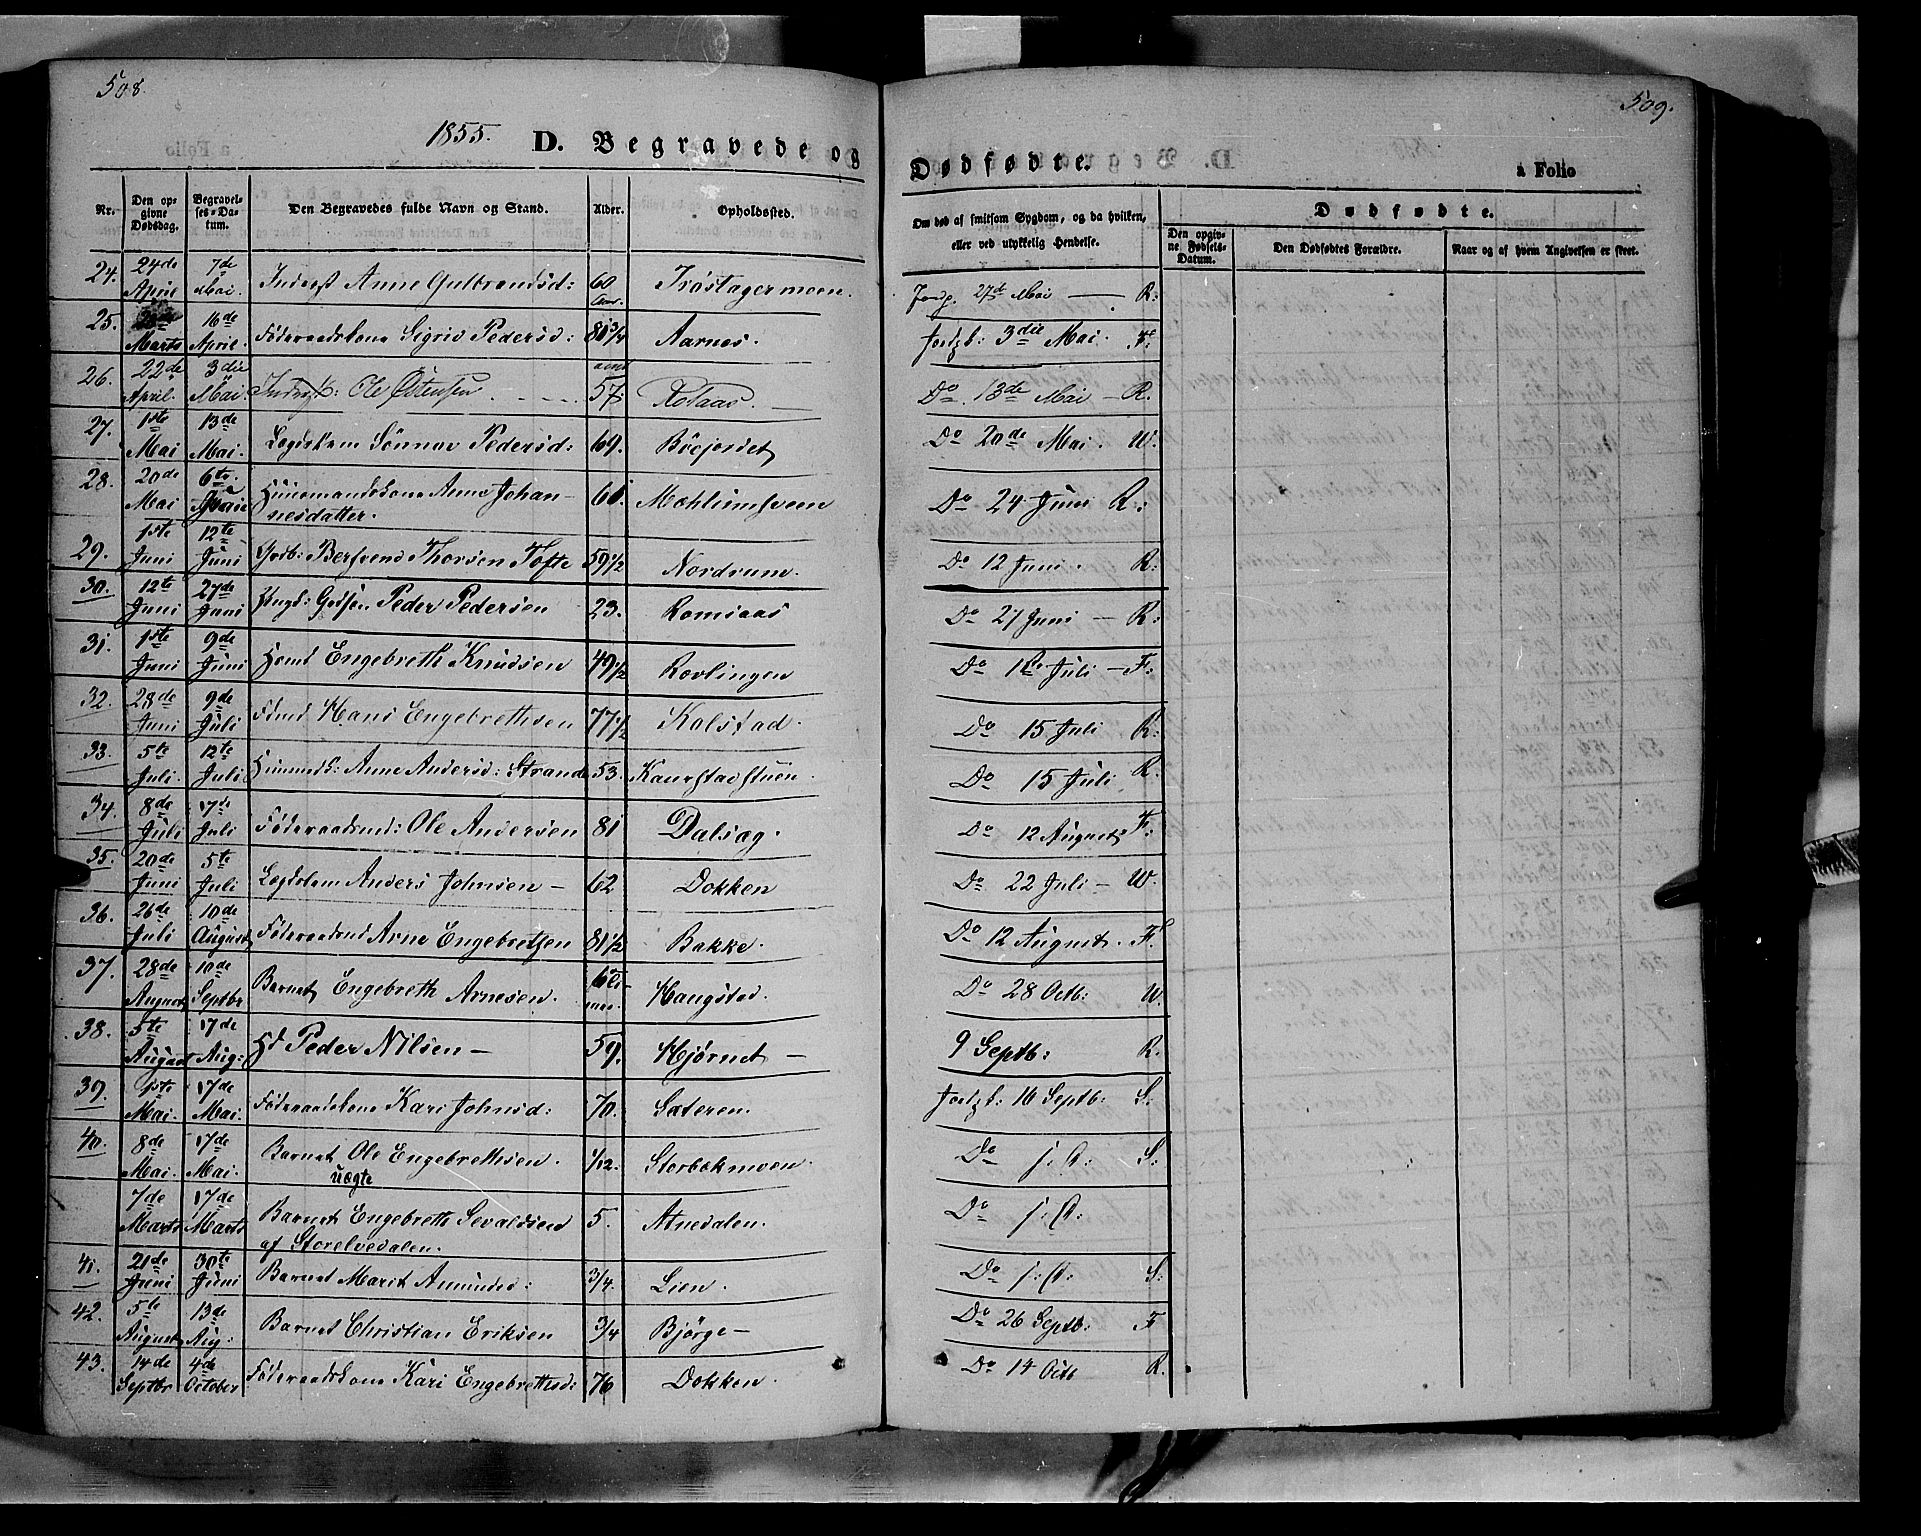 508.
509.
1855. D. Begravede og Dødfødte.
a Folio
Nr. Den opgivne Dødsdag. Begravelses-Datum. Den Begravedes fulde Navn og Stand. Alder. Opholdssted. Om død af smitsom Sygdom, og da hvilken, eller ved ulykkelig Hendelse. Dødfødte.
Den opgivne Fødsels-Datum. Den Dødfødtes Forældre. Naar og af hvem Angivelsen er skeet.
24. 24de April 7de Mai. Inderst Anne Gulbrandsd: 60 Trøstagermoen. 27de Mai — R:
25. Marts 16de April. Føderaadskone Sigrid Pedersd: 80 3/4 Aarnes. fortgt: 3die Mai. F:
26. 22de April. 3die Mai Ole Østensen 57. Do. 13de Mai — R.
27. 1ste Mai 13de Mai. Lægdslem Pedersd: 69. Do 20de Mai. W.
28. 20de Mai 6te Juni Huusmandskone Anne Johannesdatter. 60. Do 24 Juni R:
29. 1ste Juni 12te Juni Thorsen Tofte 59 1/2 Nordrum. Do 12 Juni. R:
30. 12te Juni 27de Juni Ungk: Peder Pedersen 23. Romsaas Do 27 Juni — R:
31. 1ste Juni 9de Juni Engebreth Knudsen 49 1/2 Rovlingen Do Juli — F:
32. 28de Juni 9de Juli Hans Engebrethsen 77 1/2 Kolstad. Do 15 Juli R:
33. 5te Juli 12te Juli Anne Andersd: Strande 53. Do 15 Juli R.
34. 8de Juli 17de Juli Føderaadsmd: Ole Andersen 81 Dalsæg. Do 12 August F:
35. 20de Juni 5te Juli Lægdslem Anders Johnsen — 62 Dokken Do 22 Juli — W.
36. 26de Juli 10de August Føderaadsmd Arne Engebretsen 81 1/2 Bakke. Do 12 August. F.
37. 28de August 10de Septbr Barnet Engebreth Arnesen. Haugstad. Do 28 Octb: W.
38. 5te August 17de Aug: Peder Nilsen — 59. Hjørnet — 9 Septb: R.
39. 1ste Mai. 17de Mai. Føderaadskone Kari Johnsd: 70. Sæteren. fortgt: 16 Septb: S:
40. 8de Mai. 17de Mai. Barnet Ole Engebrethsen. uægte 1/12. Storbækmoen. Do S:
7de Marts 17de Marts Barnet Engebreth Sevaldsen af Storelvedalen. 5. Atnedalen. Do
41. 21de Juni 30te Juni Barnet Marit Amundsd: 3/4. Lien. Do S:
42. 5te August 13de Aug: Barnet Christian Eriksen 3/4 Bjørge — Do 26 Septb: F
43. 14de Septbr 4de October Føderaadskone Kari Engebrethsd: 76 Dokken. Do 14 Octb R.